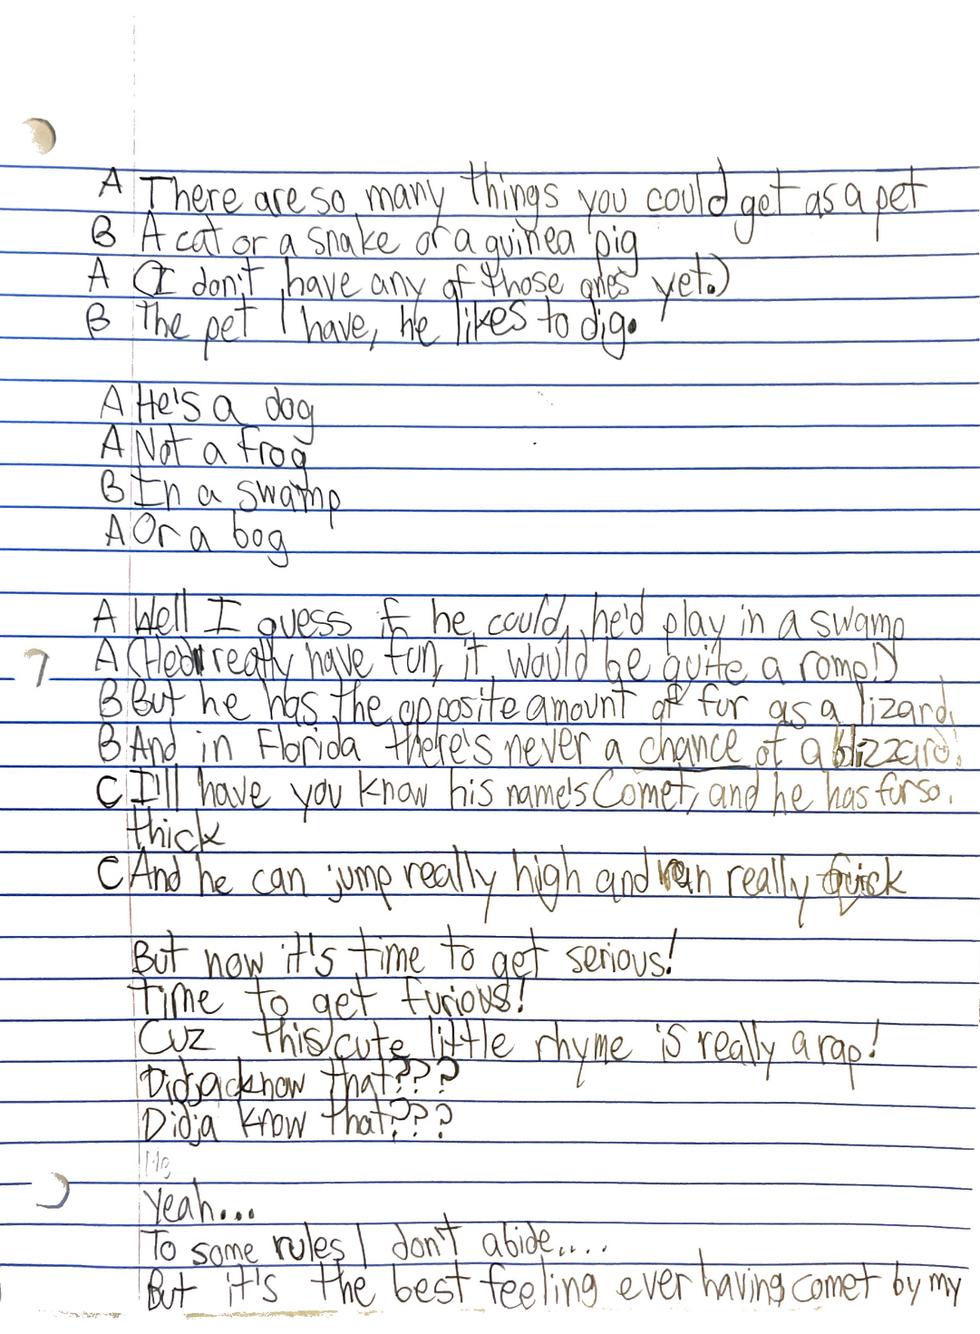 A There are so many things you could get as a pet
B A cat or a snake or a guinea pig
A (I don't have any of those ones yet.)
B The pet I have, he likes to dig.
A He's a dog
A Not a frog
B In a swamp
A Or a bog
A Well I guess if he could, he'd play in a swamp
A (He'd really have fun, it would be quite a romp!)
B But he has the opposite amount of fur as a lizard.
B And in Florida there's never a chance of a blizzard.
C I'll have you know his name's Comet, and he has fur so.
thick
C And he can jump really high and run really quick
But now it's time to get serious!
Time to get furious!
Cuz this cute little rhyme is really a rap!
Didja know that???
Didja know that???
Yeah...
To some rules I don't abide....
But it's the best feeling ever having comet by my